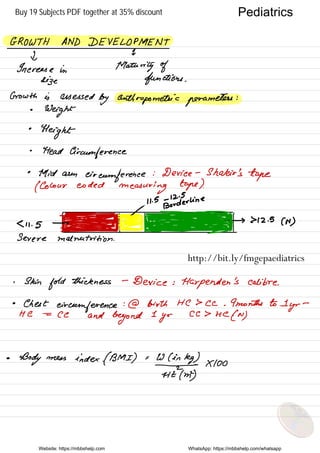 Buy 19 Subjects PDF together at 35% discount
Pediatrics
GROWTH AND DEVELOPMENT
Increase in size
Maturity of functions.
Growth is assessed by anthropometric parameters:
• Weight
• Height
• Head Circumference
• Mid arm circumference : Device - Shakir's tape
(Colour coded measuring tape)
11.5 - 12.5
Borderline
<11.5
>12.5 (N)
Severe malnutrition.
http://bit.ly/fmgepaediatrics
• Skin fold thickness - Device : Harpenden's calibre.
• Chest circumference : @ birth HC > CC. 9months to 1yr -
HC = CC and beyond 1 yr CC > HC (N)
• Body mass index (BMI) = W (in kg) X100
Ht² (m²)
Website: https://mbbshelp.com
WhatsApp: https://mbbshelp.com/whatsapp